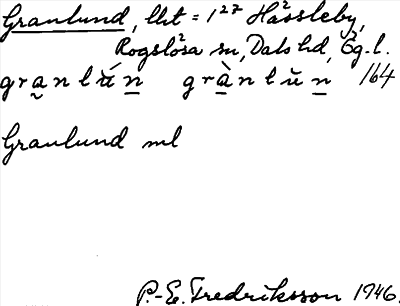 Granlund, lht = 1²⁷ Hässleby,
Rogslösa sn, Dals hd, Ög. l.
granlún grànlŭn 164
Granlund ml
P.-E. Fredriksson 1946.